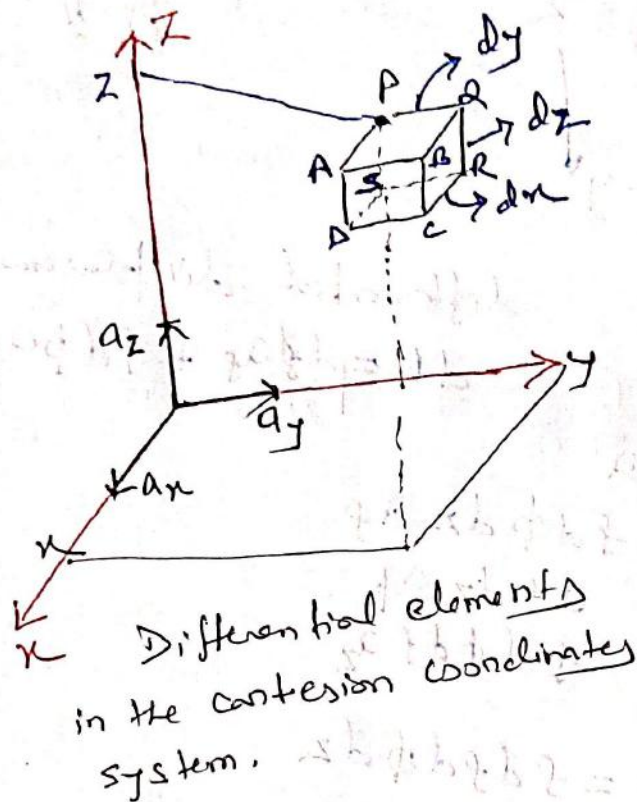 Z
Z
P
dy
Q
dz
A
B
S
R
dx
D
C
az
y
ay
ax
x
x
Differential elements
in the cartesion coordinates
system.